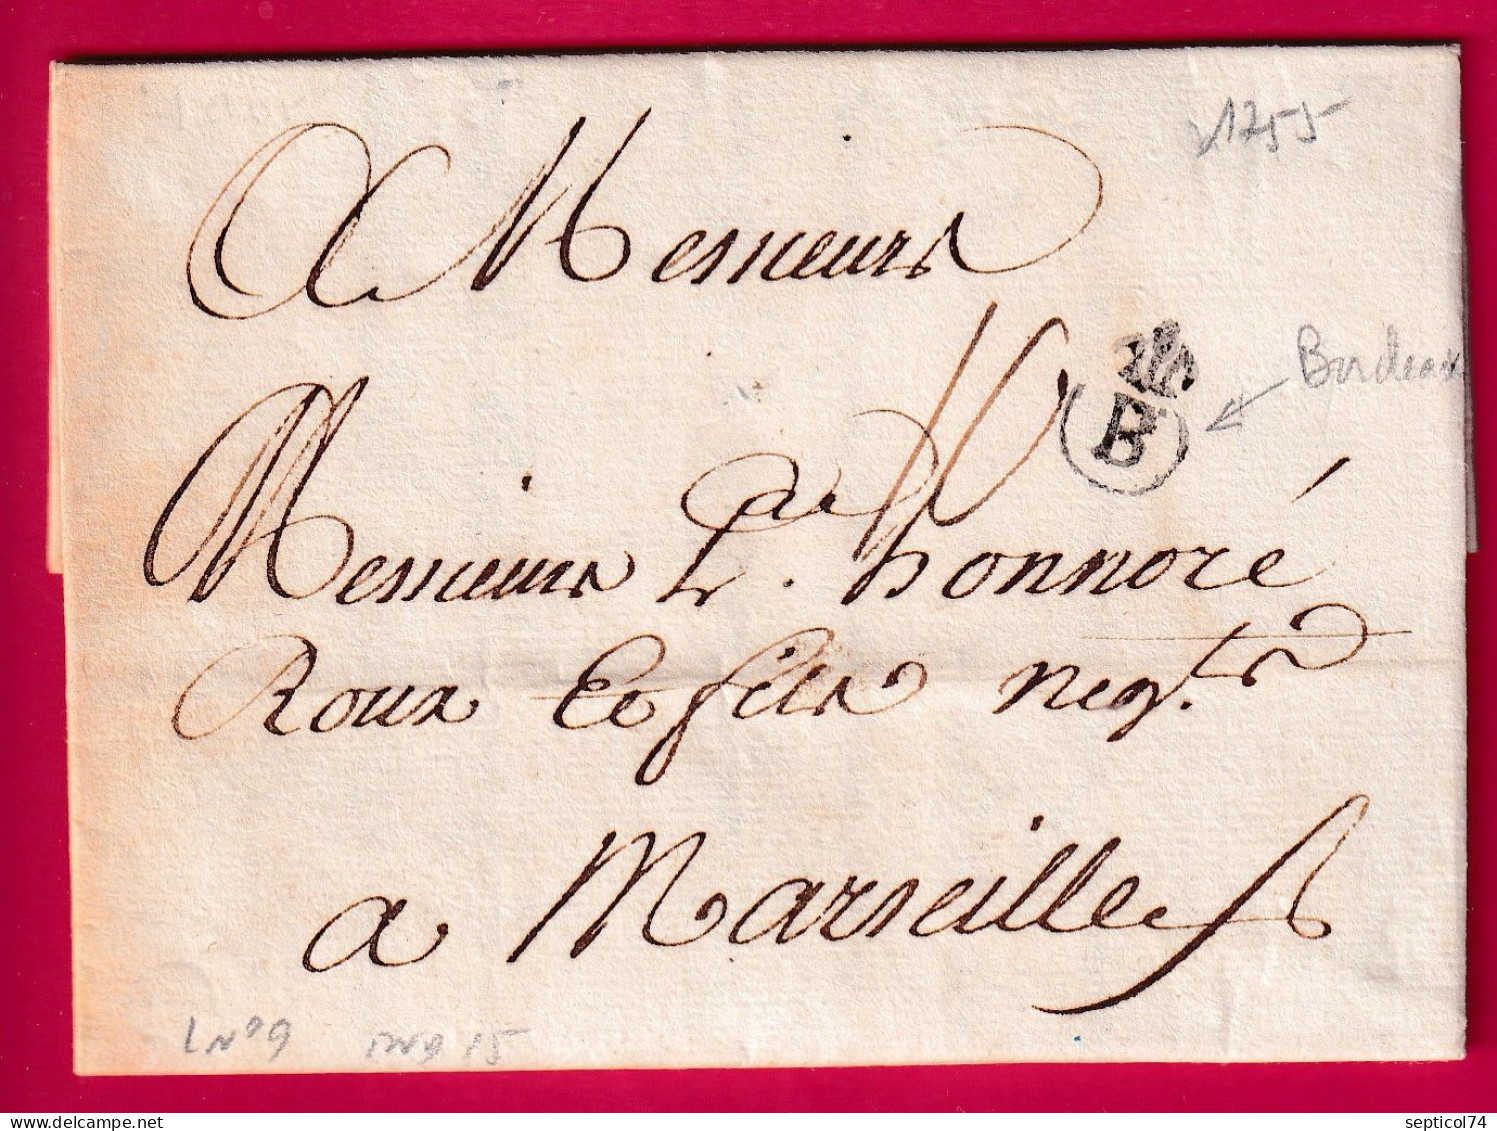 1755
A Messieurs
B
Bordeaux
Messieurs Lse. honnoré
Roux & fils negts.
a Marseille
L N° 9 ind 15
delcampe.net
septicol74